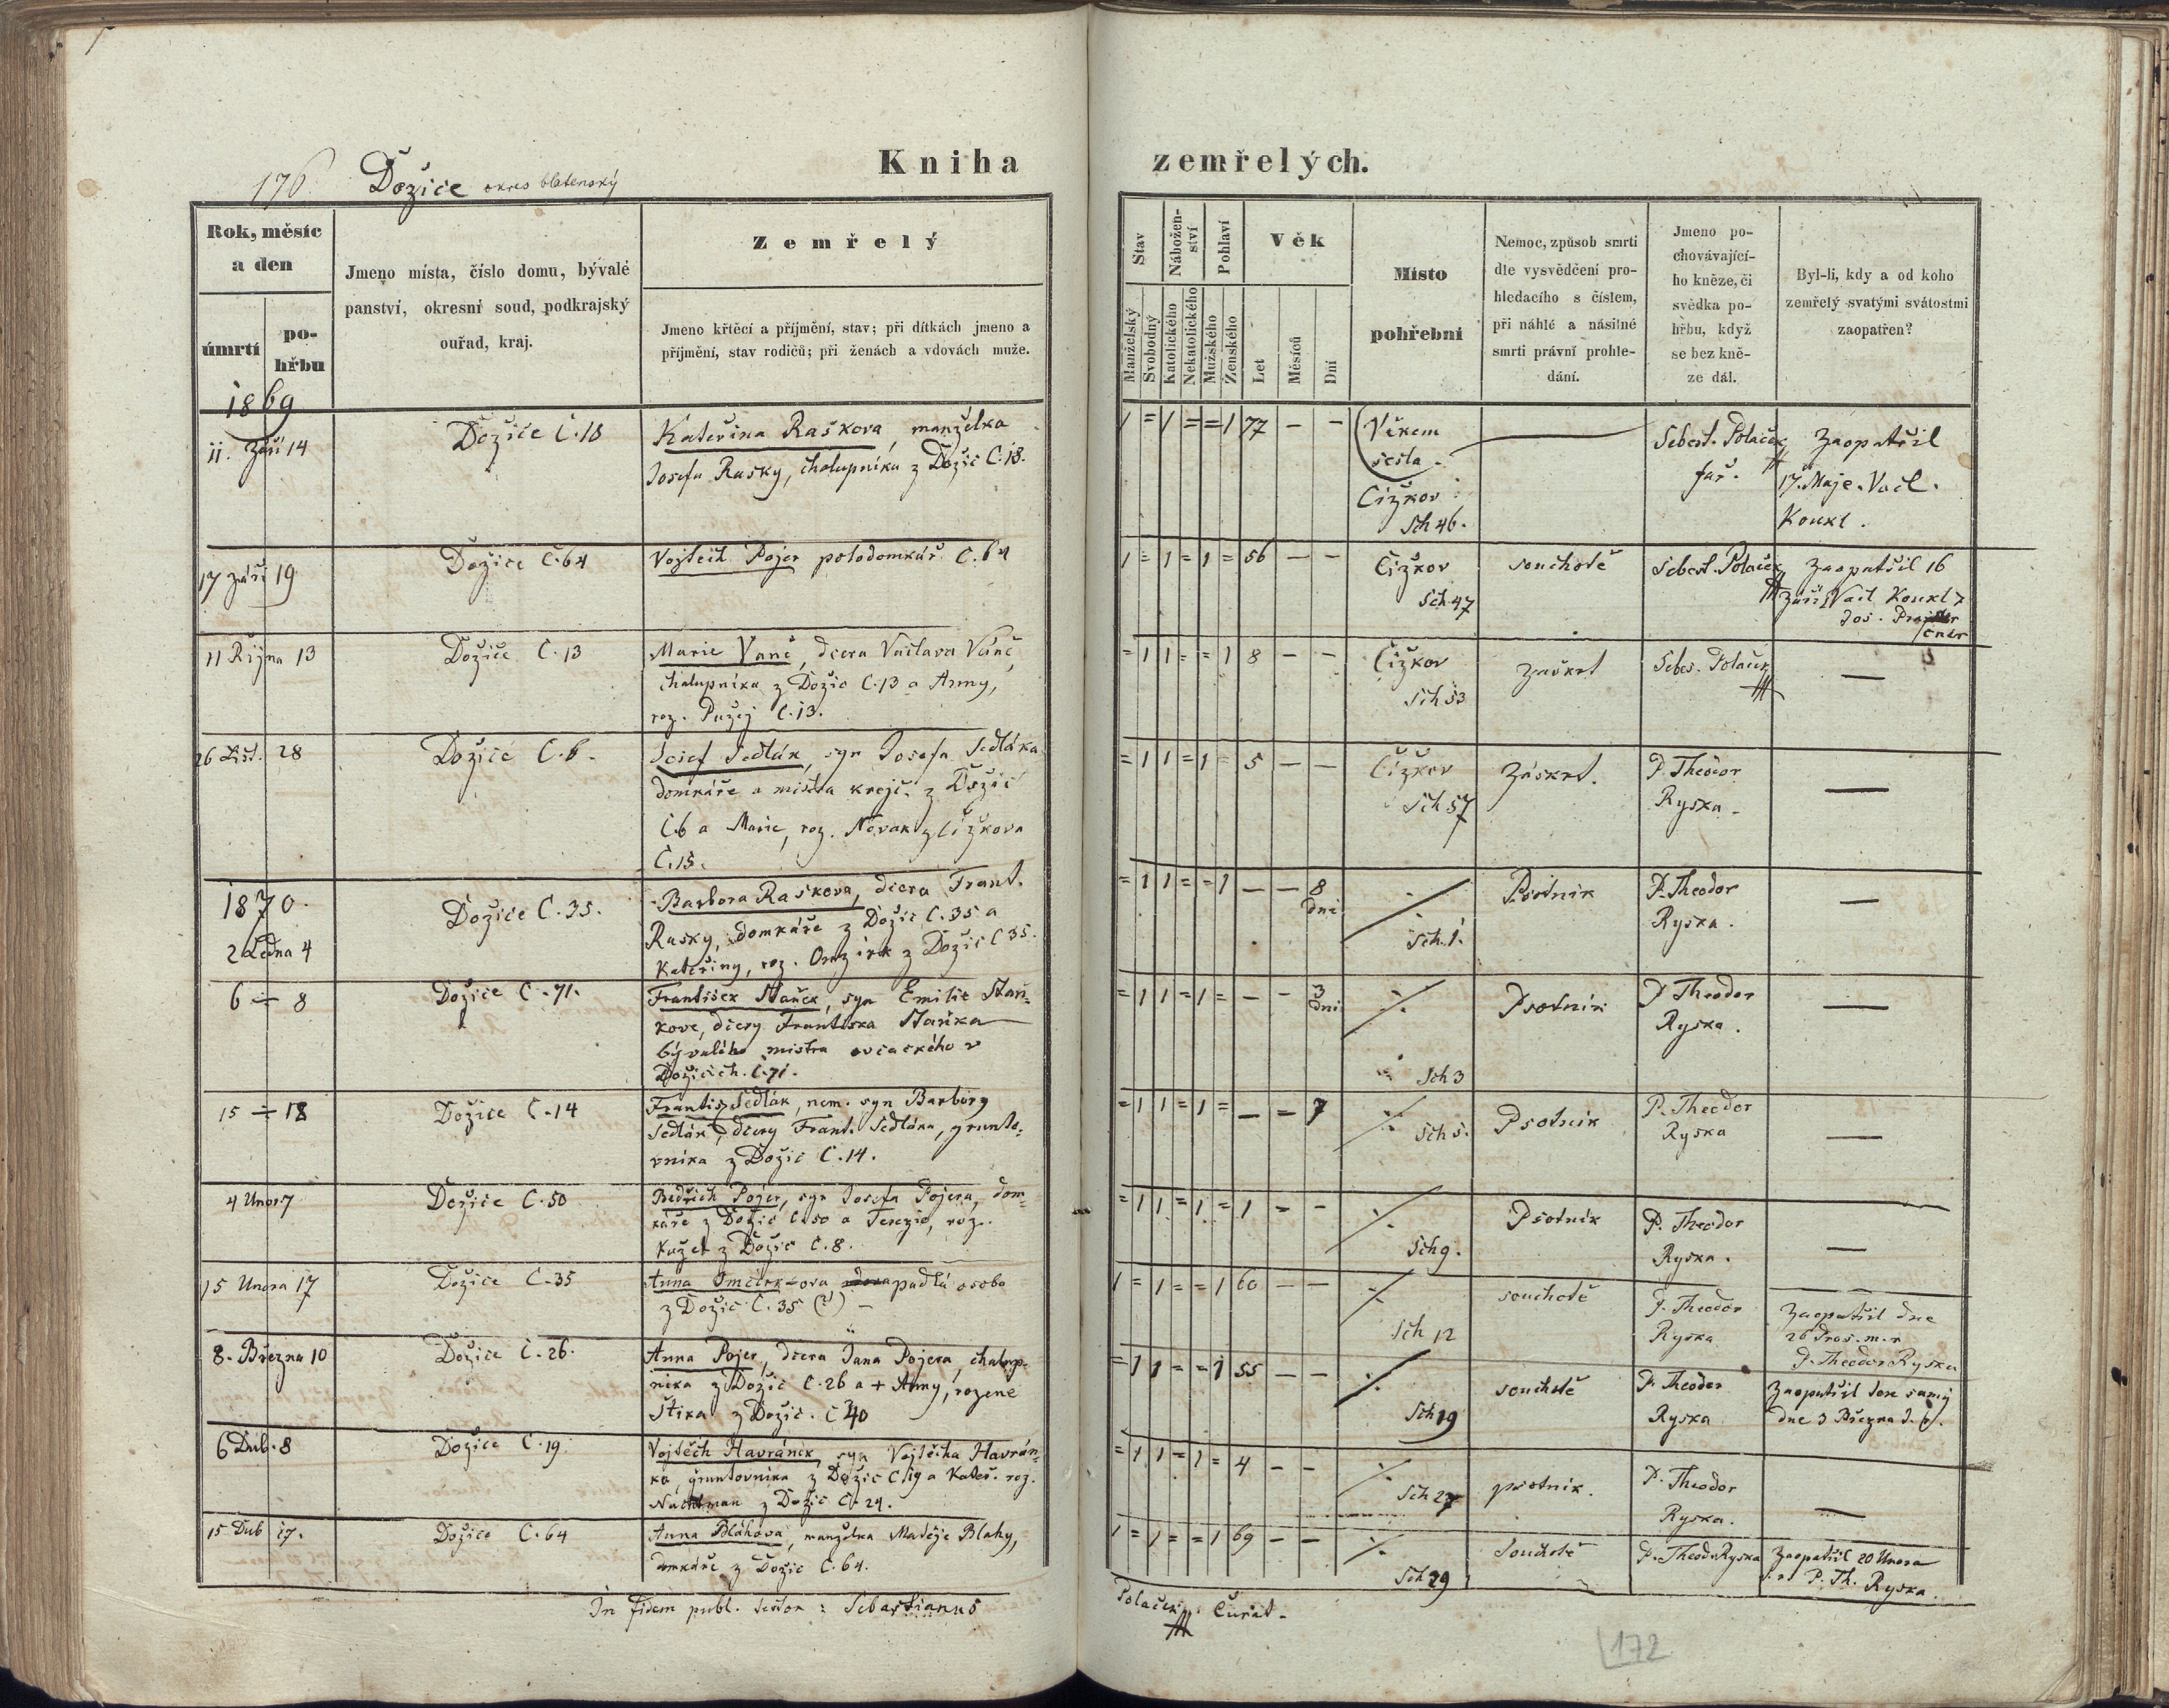 176. Dožice okres blatenský
Kniha zemřelých.
Rok, měsíc
a den
úmrtí
po-
hřbu
Jmeno místa, číslo domu, bývalé
panství, okresní soud, podkrajský
ouřad, kraj.
Zemřelý
Jmeno křtěcí a příjmění, stav; při dítkách jmeno a
příjmění, stav rodičů; při ženách a vdovách muže.
Stav
Nábožen-
ství
Pohlaví
Věk
Manželský
Svobodný
Katolického
Nekatolického
Mužského
Ženského
Let
Měsíců
Dní
Místo
pohřební
Nemoc, způsob smrti
dle vysvědčení pro-
hledacího s číslem,
při náhlé a násilné
smrti právní prohle-
dání.
Jmeno po-
chovávající-
ho kněze, či
svědka po-
hřbu, když
se bez kně-
ze dál.
Byl-li, kdy a od koho
zemřelý svatými svátostmi
zaopatřen?
1869
11. Září 14
Dožice Č.18
Kateřina Raškova, manželka
Josefa Rašky, chalupníka z Dožic Č.18.
1 = 1 = = 1 77 — —
Věkem
sešla.
Čižkov
Sch 46.
Sebest. Polaček
far.
Zaopatřil
17. Maje. Vacl.
Koukl.
17 září 19
Dožice Č.64
Vojtěch Pojer polodomkář Č.64
1 = 1 = 1 = 56 — —
Čižkov
Sch 47
souchotě
Sebest. Polaček
Zaopatřil 16
září Vacl Koukl
Jos.
11 Října 13
Dožice Č.13
Marie Vaněč, dcera Václava Vaněč,
chalupníka z Dožic Č.13 a Anny,
roz. Pužej Č.13.
= 1 1 = = 1 8 — —
Čižkov
Sch 53
zaškrt
Sebes. Polaček
—
26 List. 28
Dožice Č.6.
Josef Sedlák, syn Josefa Sedláka
domkáře a mistra krejč. z Dožic
Č.6 a Marie, roz. Novak z Čižkova
Č.15.
= 1 1 = 1 = 5 — —
Čižkov
Sch 57
Záskrt.
P. Theodor
Ryska.
—
1870.
2 Ledna 4
Dožice Č.35.
Barbora Raškova, dcera Frant.
Rašky, domkáře z Dožic Č.35 a
Kateřiny, roz. Omzirk z Dožic Č 35.
= 1 1 = = 1 — — 8
dní
Sch.1.
Psotnik
P. Theodor
Ryska.
—
6 ÷ 8
Dožice Č.71.
František Staněk, syn Emilie Staň-
kove, dcery Františka Staňka
bývalého mistra ovčackého v
Dožicích. Č.71.
= 1 1 = 1 = — — 3
dni
Sch 3
Psotnik
P Theodor
Ryska.
—
15 ÷ 18
Dožice Č.14
Františ. Sedlák, nem. syn Barbory
Sedlák, dcery Frant. Sedláka, grunto-
vníka z Dožic Č.14.
= 1 1 = 1 = — — 7
Sch 5.
Psotnik
P. Theodor
Ryska
—
4 Unor. 7
Dožice Č.50
Bedřich Pojer, syn Josefa Pojera, dom-
káře z Dožic Č.50 a Terezie, roz.
Kužel z Dožic Č.8.
= 1 1 = 1 = 1 — —
Sch 9.
Psotnik
P. Theodor
Ryska.
—
15 Unora 17
Dožice Č.35
Anna Omcirkova padlá osoba
z Dožic Č.35 (?) —
1 = 1 = = 1 60 — —
Sch 12
souchotě
P. Theodor
Ryska
Zaopatřil dne
26 Pros. m. r
P. Theodor Ryska
8. Března 10
Dožice Č.26.
Anna Pojer, dcera Jana Pojera, chalup-
níka z Dožic Č.26 a + Anny, rozene
Štika z Dožic. Č 40
= 1 1 = = 1 55 — —
Sch 19
souchotě
P. Theodor
Ryska
Zaopatřil tene samý
dne 3 Března t. r.
6 Dub. 8
Dožice Č.19.
Vojtěch Havránek, syn Vojtěcha Havrán-
ka, gruntovníka z Dožic Č.19 a Kateř. roz.
Nachtman z Dožic Č.24.
= 1 1 = 1 = 4 — —
Sch 27
psotnik.
P. Theodor
Ryska.
—
15 Dub 17.
Dožice Č.64
Anna Bláhova, manželka Matěje Blahy,
domkáře z Dožic Č.64.
1 = 1 = = 1 69 — —
Sch 29
Souchotě
P. Theodr Ryska
Zaopatřil 20 Unora
t. r. P. Th. Ryska.
In fidem publ. testor: Sebastianus
Polaček Curat.
172